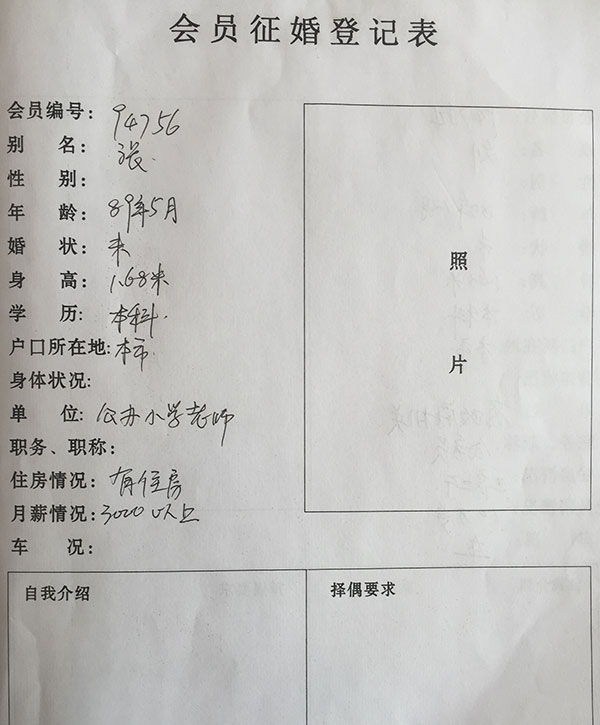 会员征婚登记表
会员编号: 94756
别 名: 张.
性 别:
年 龄: 89年5月
婚 状: 未
身 高: 1.68米
学 历: 本科.
户口所在地: 本市.
身体状况:
单 位: 公办小学老师
职务、职称:
住房情况: 有住房
月薪情况: 3000以上
车 况:
照
片
自我介绍
择偶要求